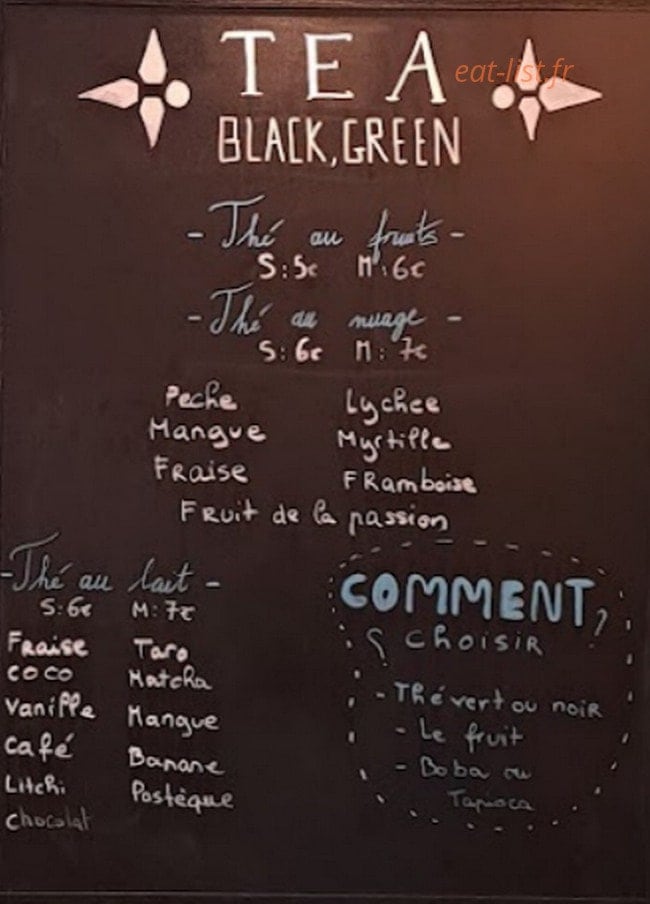 TEA
eat-list.fr
BLACK, GREEN
- Thé au fruits -
S:5€ M:6€
- Thé au nuage -
S:6€ M:7€
Peche Lychee
Mangue Myrtille
FRaise FRamboise
FRuit de la passion
- Thé au lait -
S:6€ M:7€
FRaise Taro
COCO Matcha
Vanille Mangue
Café Banane
Litchi Postèque
chocolat
COMMENT
choisir ?
- Thé vert ou noir
- Le fruit
- Boba ou
Tapioca